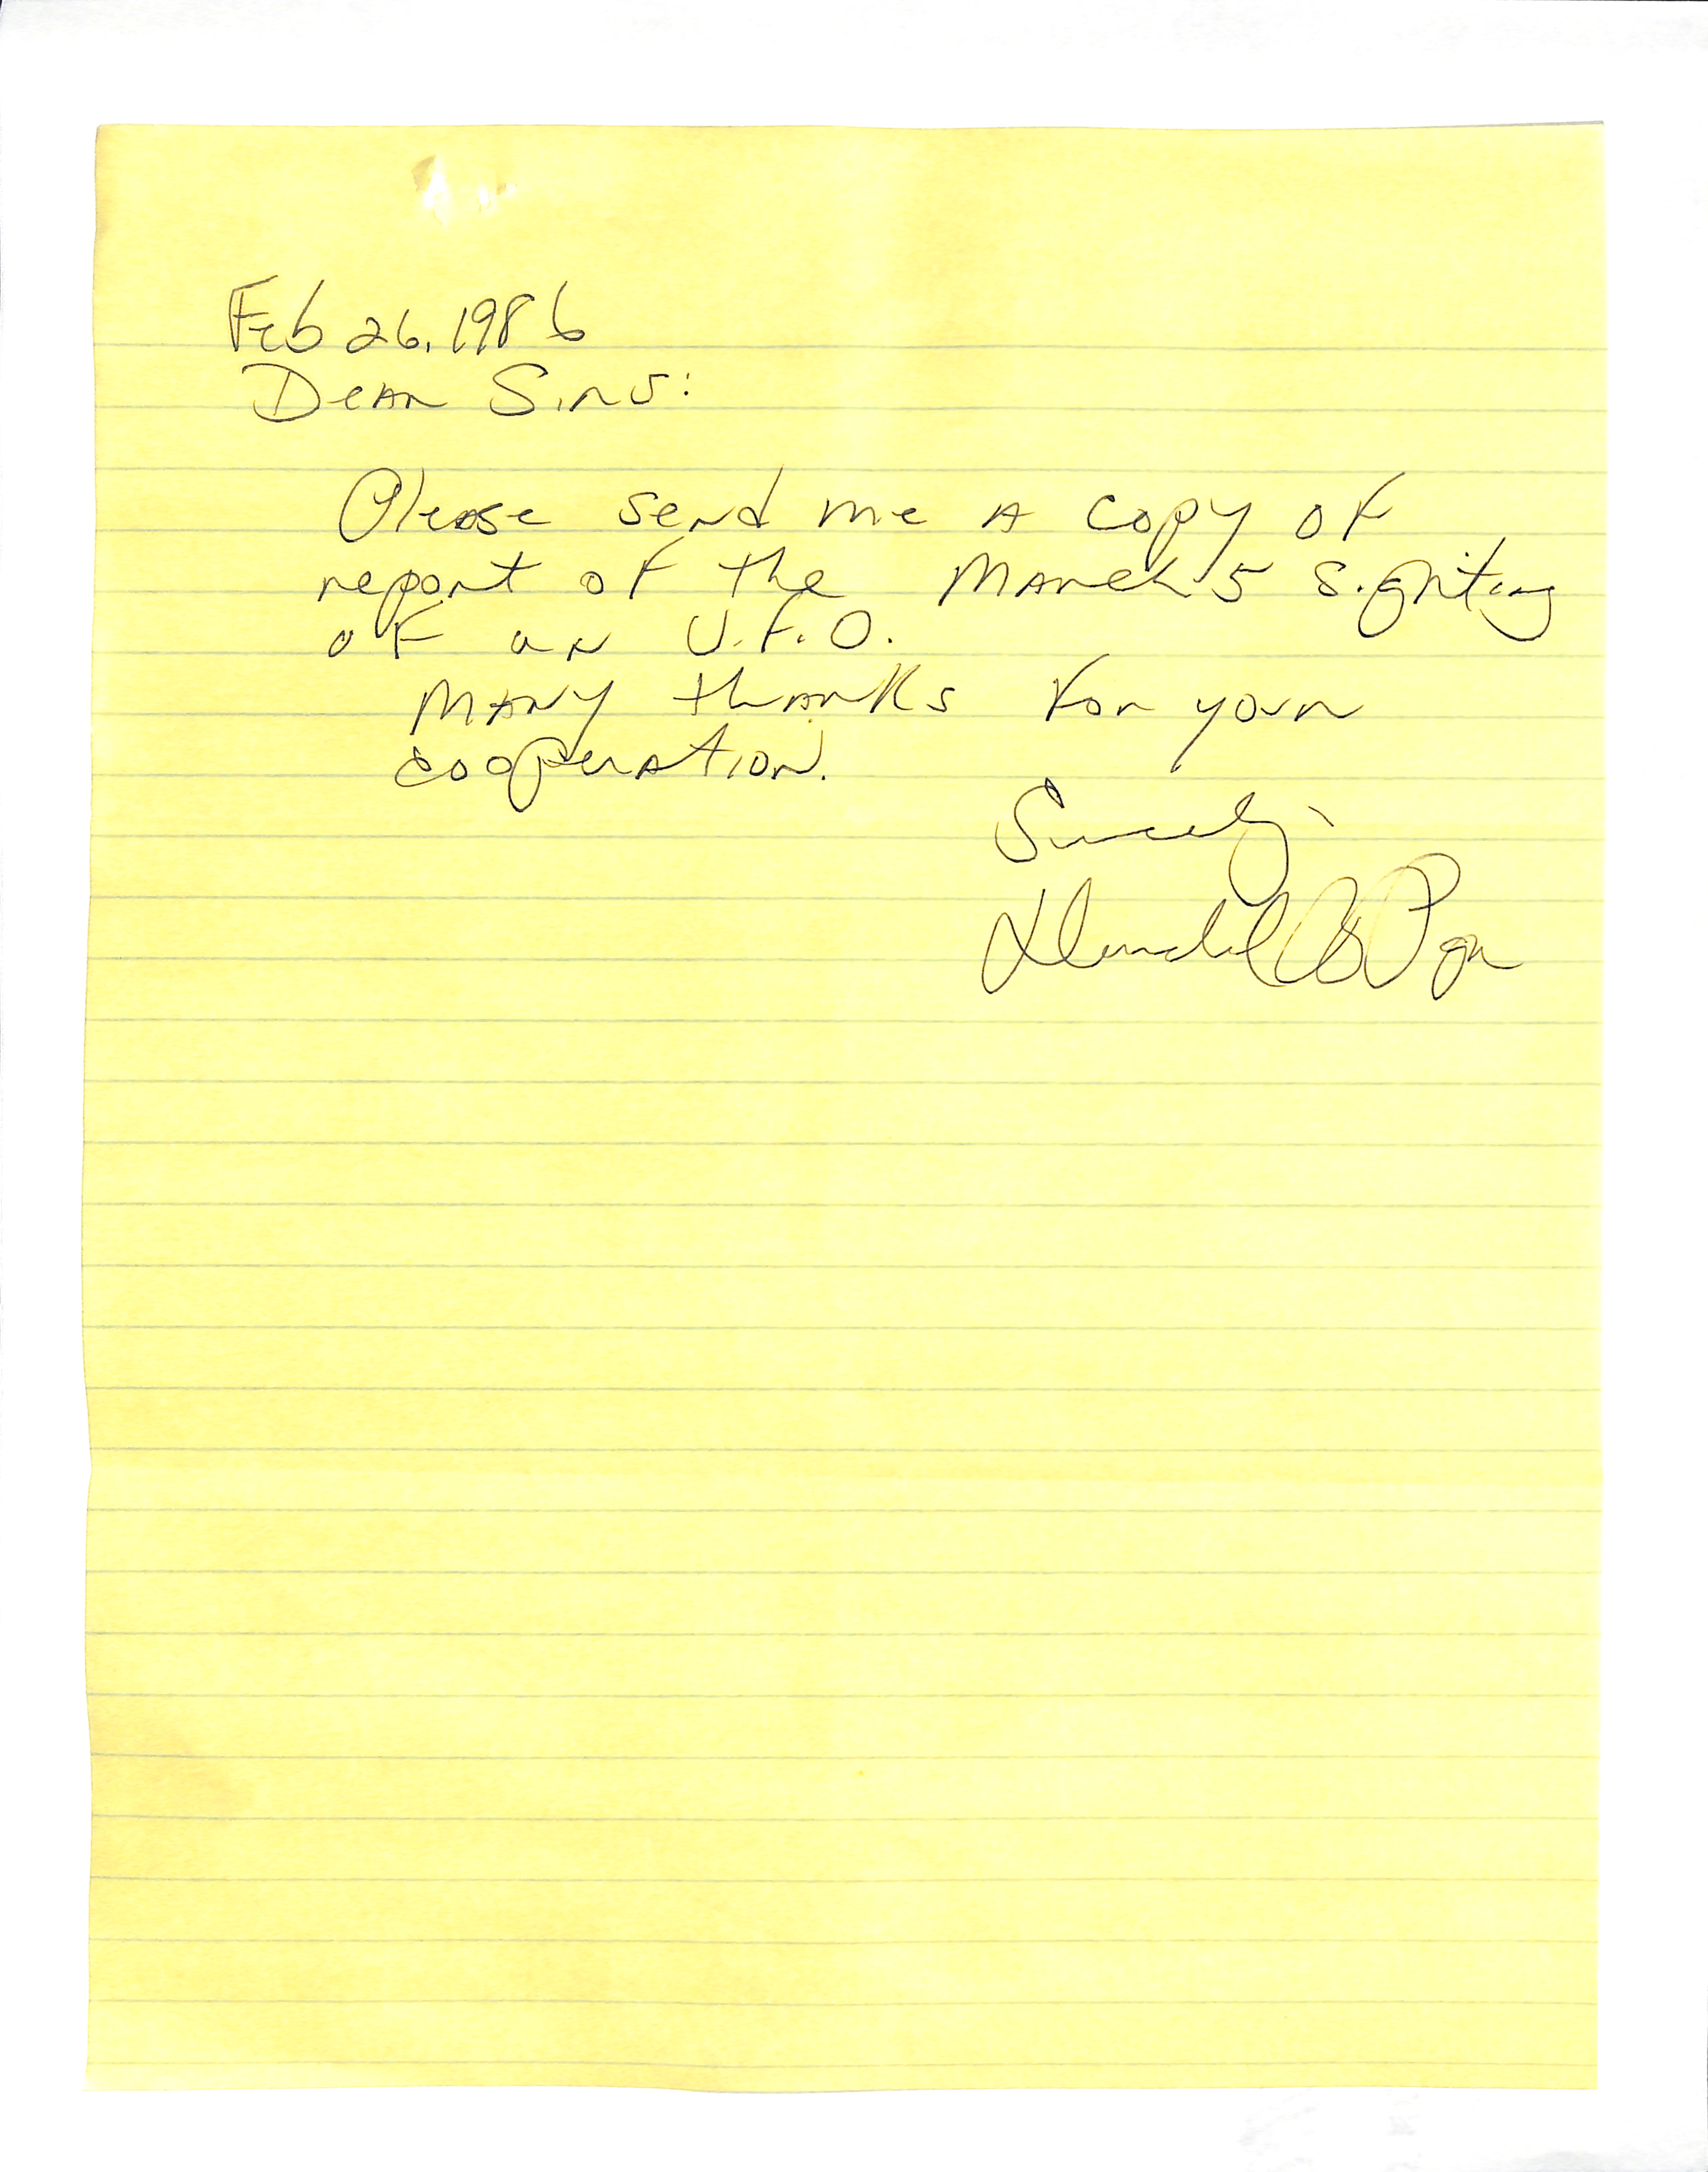 Feb 26, 1986
Dear Sirs:
Please send me a copy of
report of the March 5 sighting
of an U.F.O.
Many thanks for your
cooperation.
Sincerely,